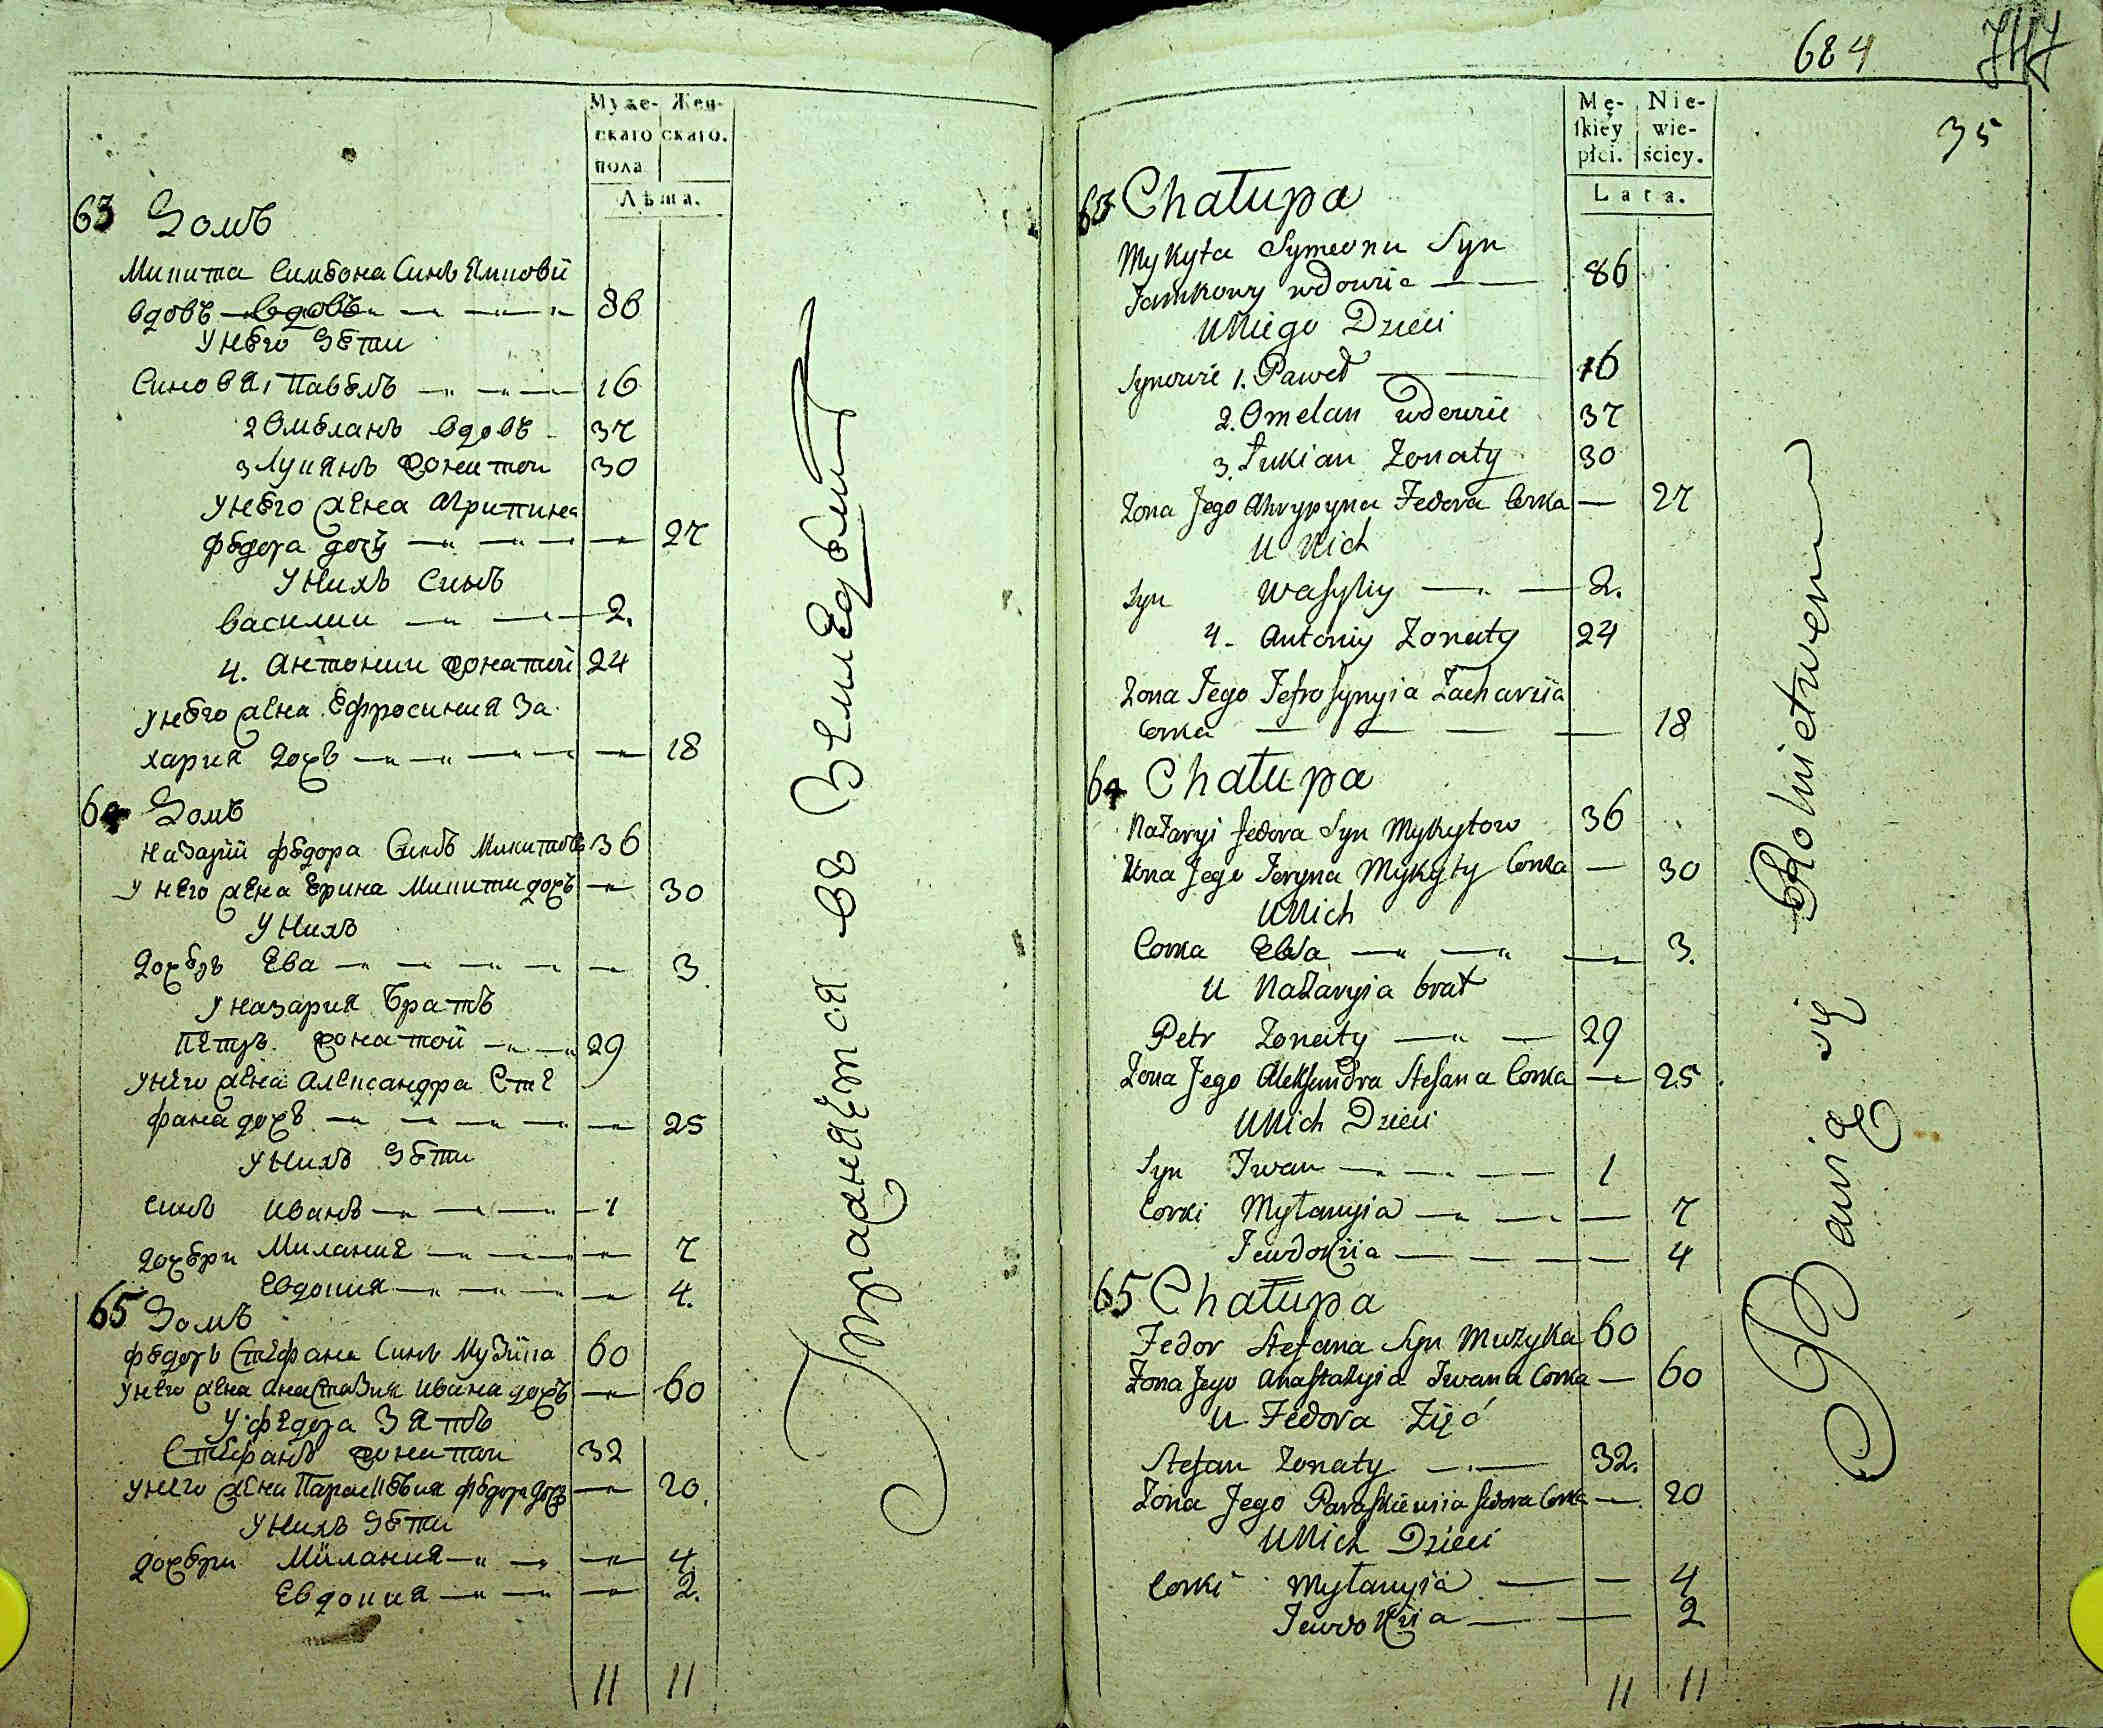 Муже- Жен-
скаго скаго.
пола
Лѣта.
63 Домъ
Микита Симеона Синъ Ямковій
вдовъ вдовъ 86
У Него Дети
Синовя 1 Павелъ 16
2 Омелянъ вдовъ 37
3 Лукянъ Жонатои 30
У Него Жена Агрипина
Федора дочъ 27
У Нихъ Синъ
Василии 2.
4. Антонии Жонатои 24
У Него Жена Ефросиния За
хария Дочъ 18
64 Домъ
Назарій Федора Синъ Микитовъ 36
У Него Жена Ерина Микити дочъ 30
У Нихъ
Дочеръ Ева 3
У Назария Братъ
Петръ Жонатой 29
У Него Жена Александра Сте
фана дочъ 25
У Нихъ Дети
Синъ Иванъ 1
Дочери Милания 7
Евдокия 4.
65 Домъ
Федоръ Стефана Синъ Музика 60
У Него Жена Анастазия Ивана дочъ 60
У Федора Зять
Стефанъ Жонатои 32
У Него Жена Параскевия Федора Дочъ 20.
У Нихъ Дети
Дочери Милания 4
Евдокия 2.
11 11
Упражняется въ Земледелии
684
35
Mę- Nie-
skiéy wie-
płci. ściey.
Lata.
63 Chałupa
Mykyta Symeona Syn
Jamkowy wdowie 86
U Niego Dzieci
Synowie 1. Paweł 16
2. Omelan wdowie 37
3. Łukian Żonaty 30
Żona Jego Ahrypyna Fedora Corka 27
U Nich
Syn Wasyliy 2.
4. Antoniy Żonaty 24
Żona Jego Jefrosynyia Zacharyia
Corka 18
64 Chałupa
Nazaryi Fedora Syn Mykytow 36
Żona Jego Jeryna Mykyty Corka 30
U Nich
Corka Ewa 3.
U Nazaryia brat
Petr Żonaty 29
Żona Jego Aleksandra Stefana Corka 25
U Nich Dzieci
Syn Iwan 1
Corki Myłanyia 7
Jewdokiia 4
65 Chałupa
Fedor Stefana Syn Muzyka 60
Żona Jego Anastazyia Iwana Corka 60
U Fedora Zięć
Stefan Żonaty 32.
Żona Jego Paraskiewiia Fedora Corka 20
U Nich Dzieci
Corki Myłanyia 4
Jewdokiia 2
11 11
Bawią się Rolnictwem